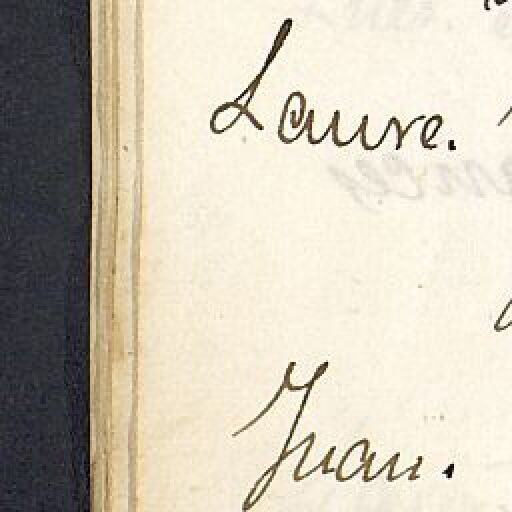 Laure.
Juan.